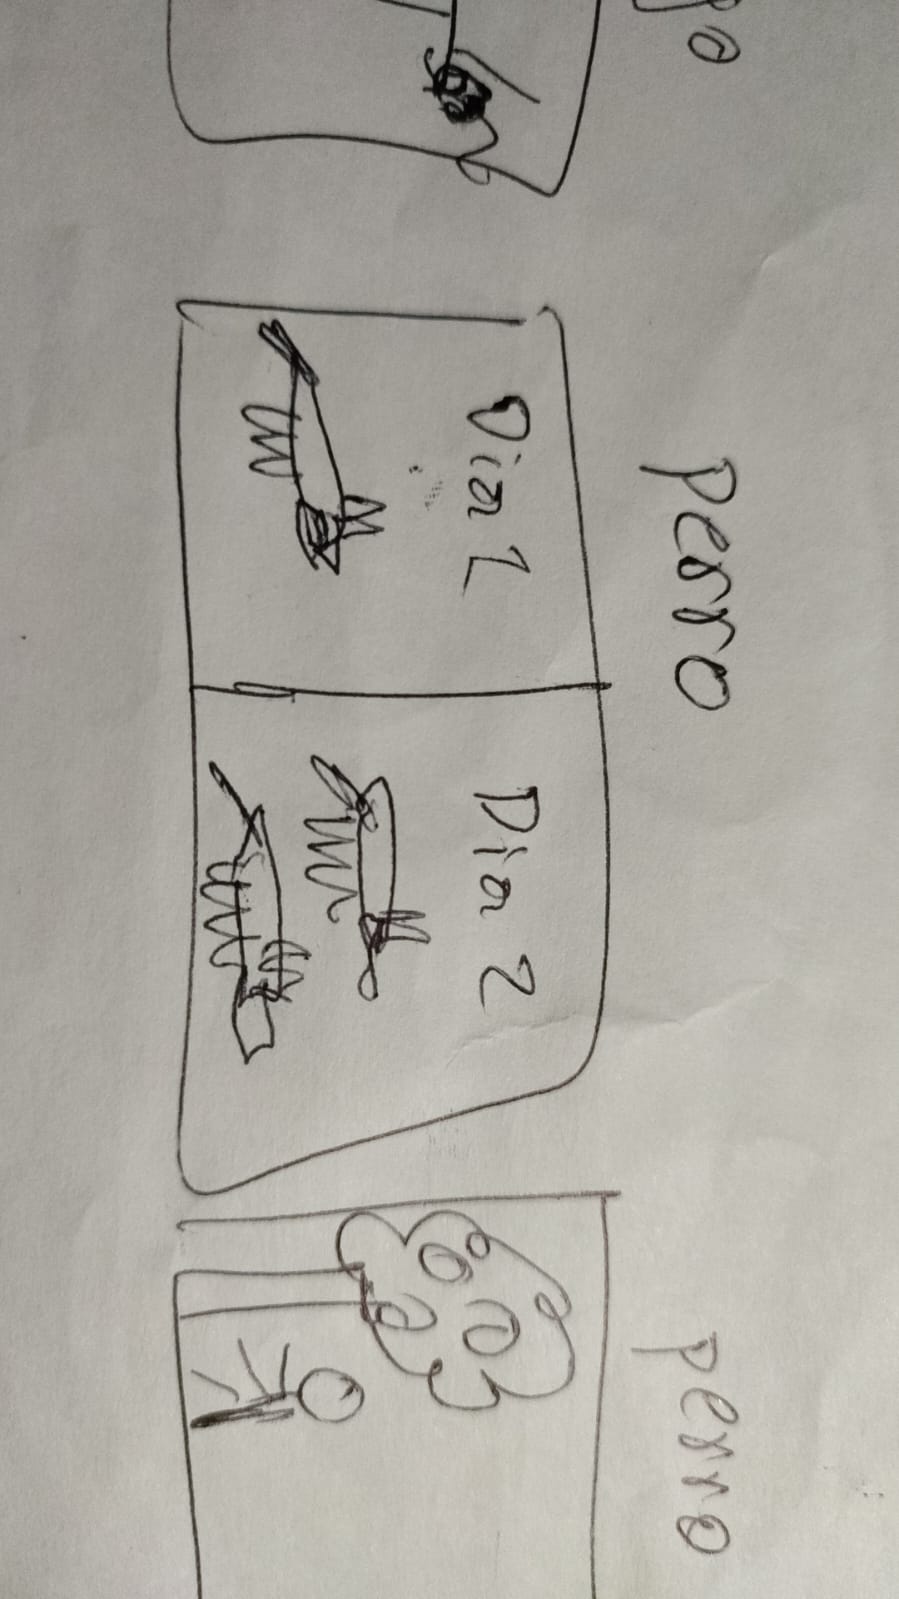 perro
Dia 1
Dia 2
perro